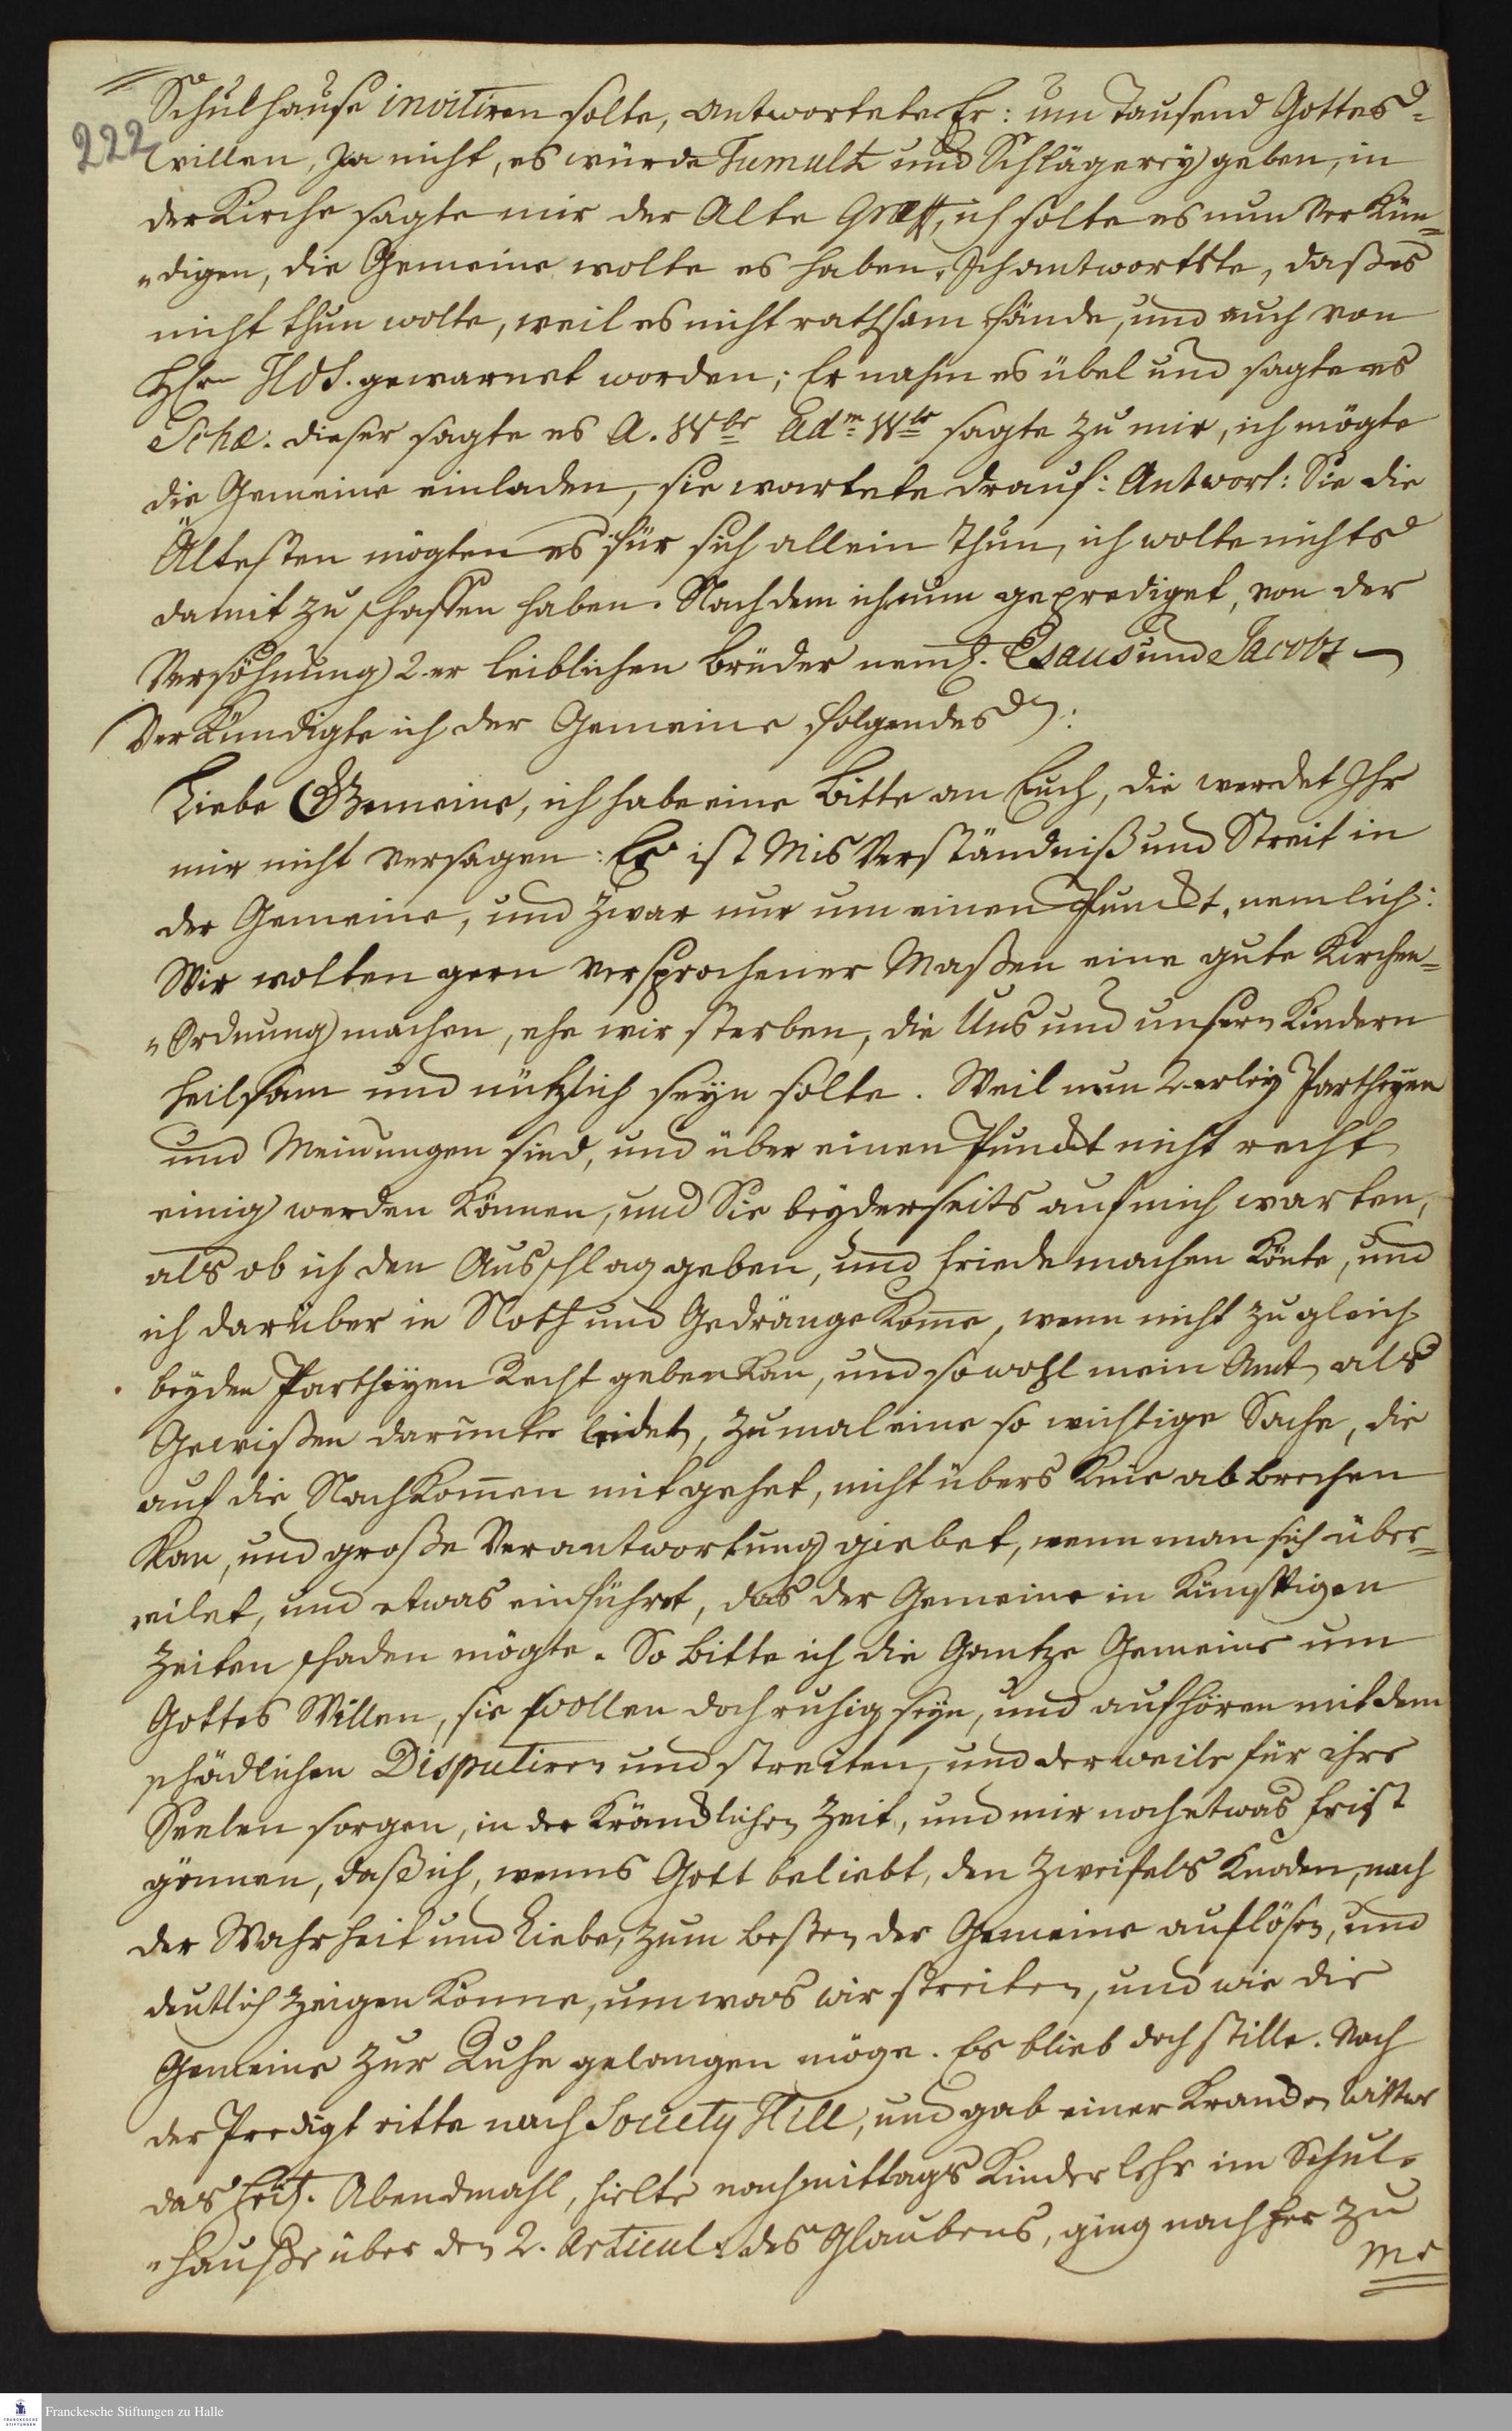 222
Schulhause invitiren solte, antwortete Er: um tausend Gottes=
willen, Ja nicht, es würde Tumult und Schlägerey geben, in
der Kirche sagte mir der Alte Graeff, ich solte es nun Verkün=
"digen, die Gemeine wolte es haben. Ich antwortete, daß es
nicht thun wolte, weil es nicht rathsam fände, und auch von
Hhrn gewarnet worden; Er nahm es übel und sagte es
Schae: dieser sagte es A. Wbr Adm Wbr sagte zu mir, ich mögte
die Gemeine einladen, sie wartete drauf: Antwort: Sie die
Ältesten mögten es für sich allein thun, ich wolte nichts
damit zu schaffen haben. Nachdem ich nun geprediget, von der
Versöhnung 2er leiblichen Brüder neml. Esaus und Jacobs
Verkündigte ich der Gemeine folgendes:
Liebe Gemeine, ich habe eine Bitte an Euch, die werdet Ihr
mir nicht versagen: Es ist Mis Verständniß und Streit in
der Gemeine, und zwar nur um einen Punckt, nemlich:
Wir wolten gern versprochener Maßen eine gute Kirchen=
"Ordnung machen, ehe wir sterben, die Uns und unsern Kindern
heilsam und nützlich seyn solte. Weil nun 2erley Partheyen
und Meinungen sind, und über einen Punckt nicht recht
einig werden können, und Sie beyderseits auf mich warten,
als ob ich den Ausschlag geben, und Friede machen könte, und
ich darüber in Noth und Gedränge kom̄e, wenn nicht zugleich
beyden Partheyen Recht geben kan, und sowohl mein Amt als
Gewißen darunter leidet, zumal eine so wichtige Sache, die
auf die Nachkom̄en mit gehet, nicht übers Knie abbrechen
kan, und große Verantwortung giebet, wenn man sich über=
eilet, und etwas einführet, das der Gemeine in künfftigen
Zeiten schaden mögte. So bitte ich die Gantze Gemeine um
Gottes Willen, sie wollen doch ruhig seyn, und aufhören mit dem
schädlichen Disputiren und streiten, und derweile für ihre
Seelen sorgen, in der kräncklichen Zeit, und mir noch etwas Frist
gönnen, daß ich, wenns Gott beliebt, den Zweifels Knoden, nach
der Wahrheit und Liebe, zum besten der Gemeine auflösen, und
deutlich zeigen könne, um was wir streiten, und wie die
Gemeine zur Ruhe gelangen möge. Es blieb doch stille. Nach
der Predigt ritte nach Society Hill, und gab einer krancken Wittwe
das heil. Abendmahl, hielte nachmittags Kinderlehr im Schul=
"hauße über den 2. Articul des Glaubens, ging nachher zu
Mr
Franckesche Stiftungen zu Halle